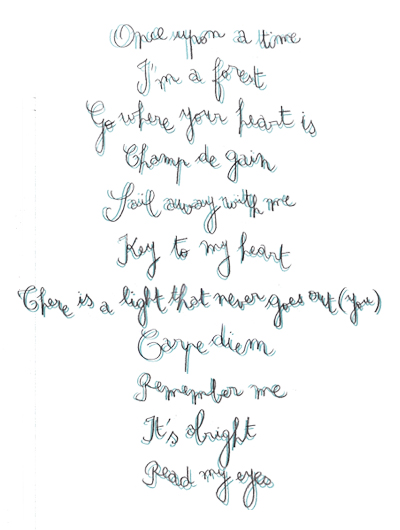 Once upon a time
I'm a forest
Go where your heart is
Champ de gain
Sail away with me
Key to my heart
There is a light that never goes out (you)
Carpe diem
Remember me
It's alright
Read my eyes